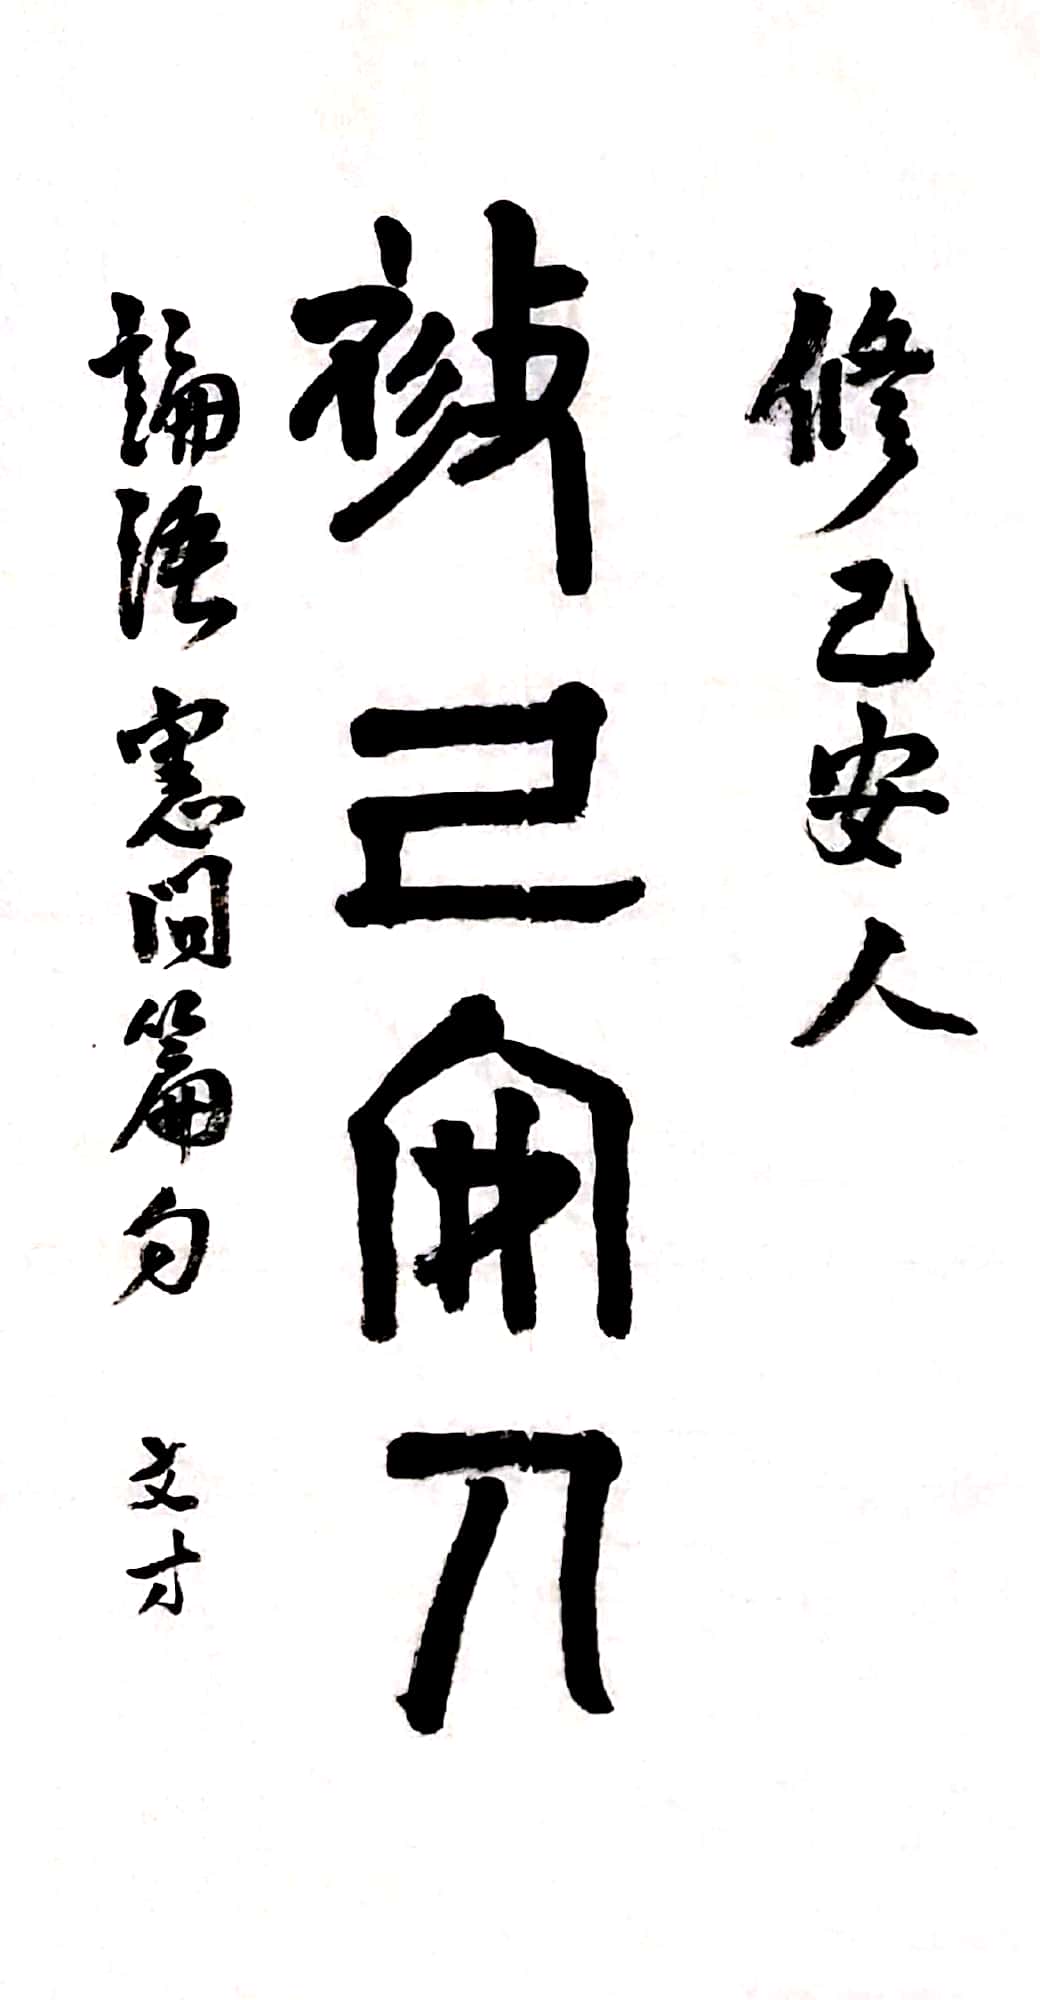 修己安人
修己安人
論語憲問篇句 文才